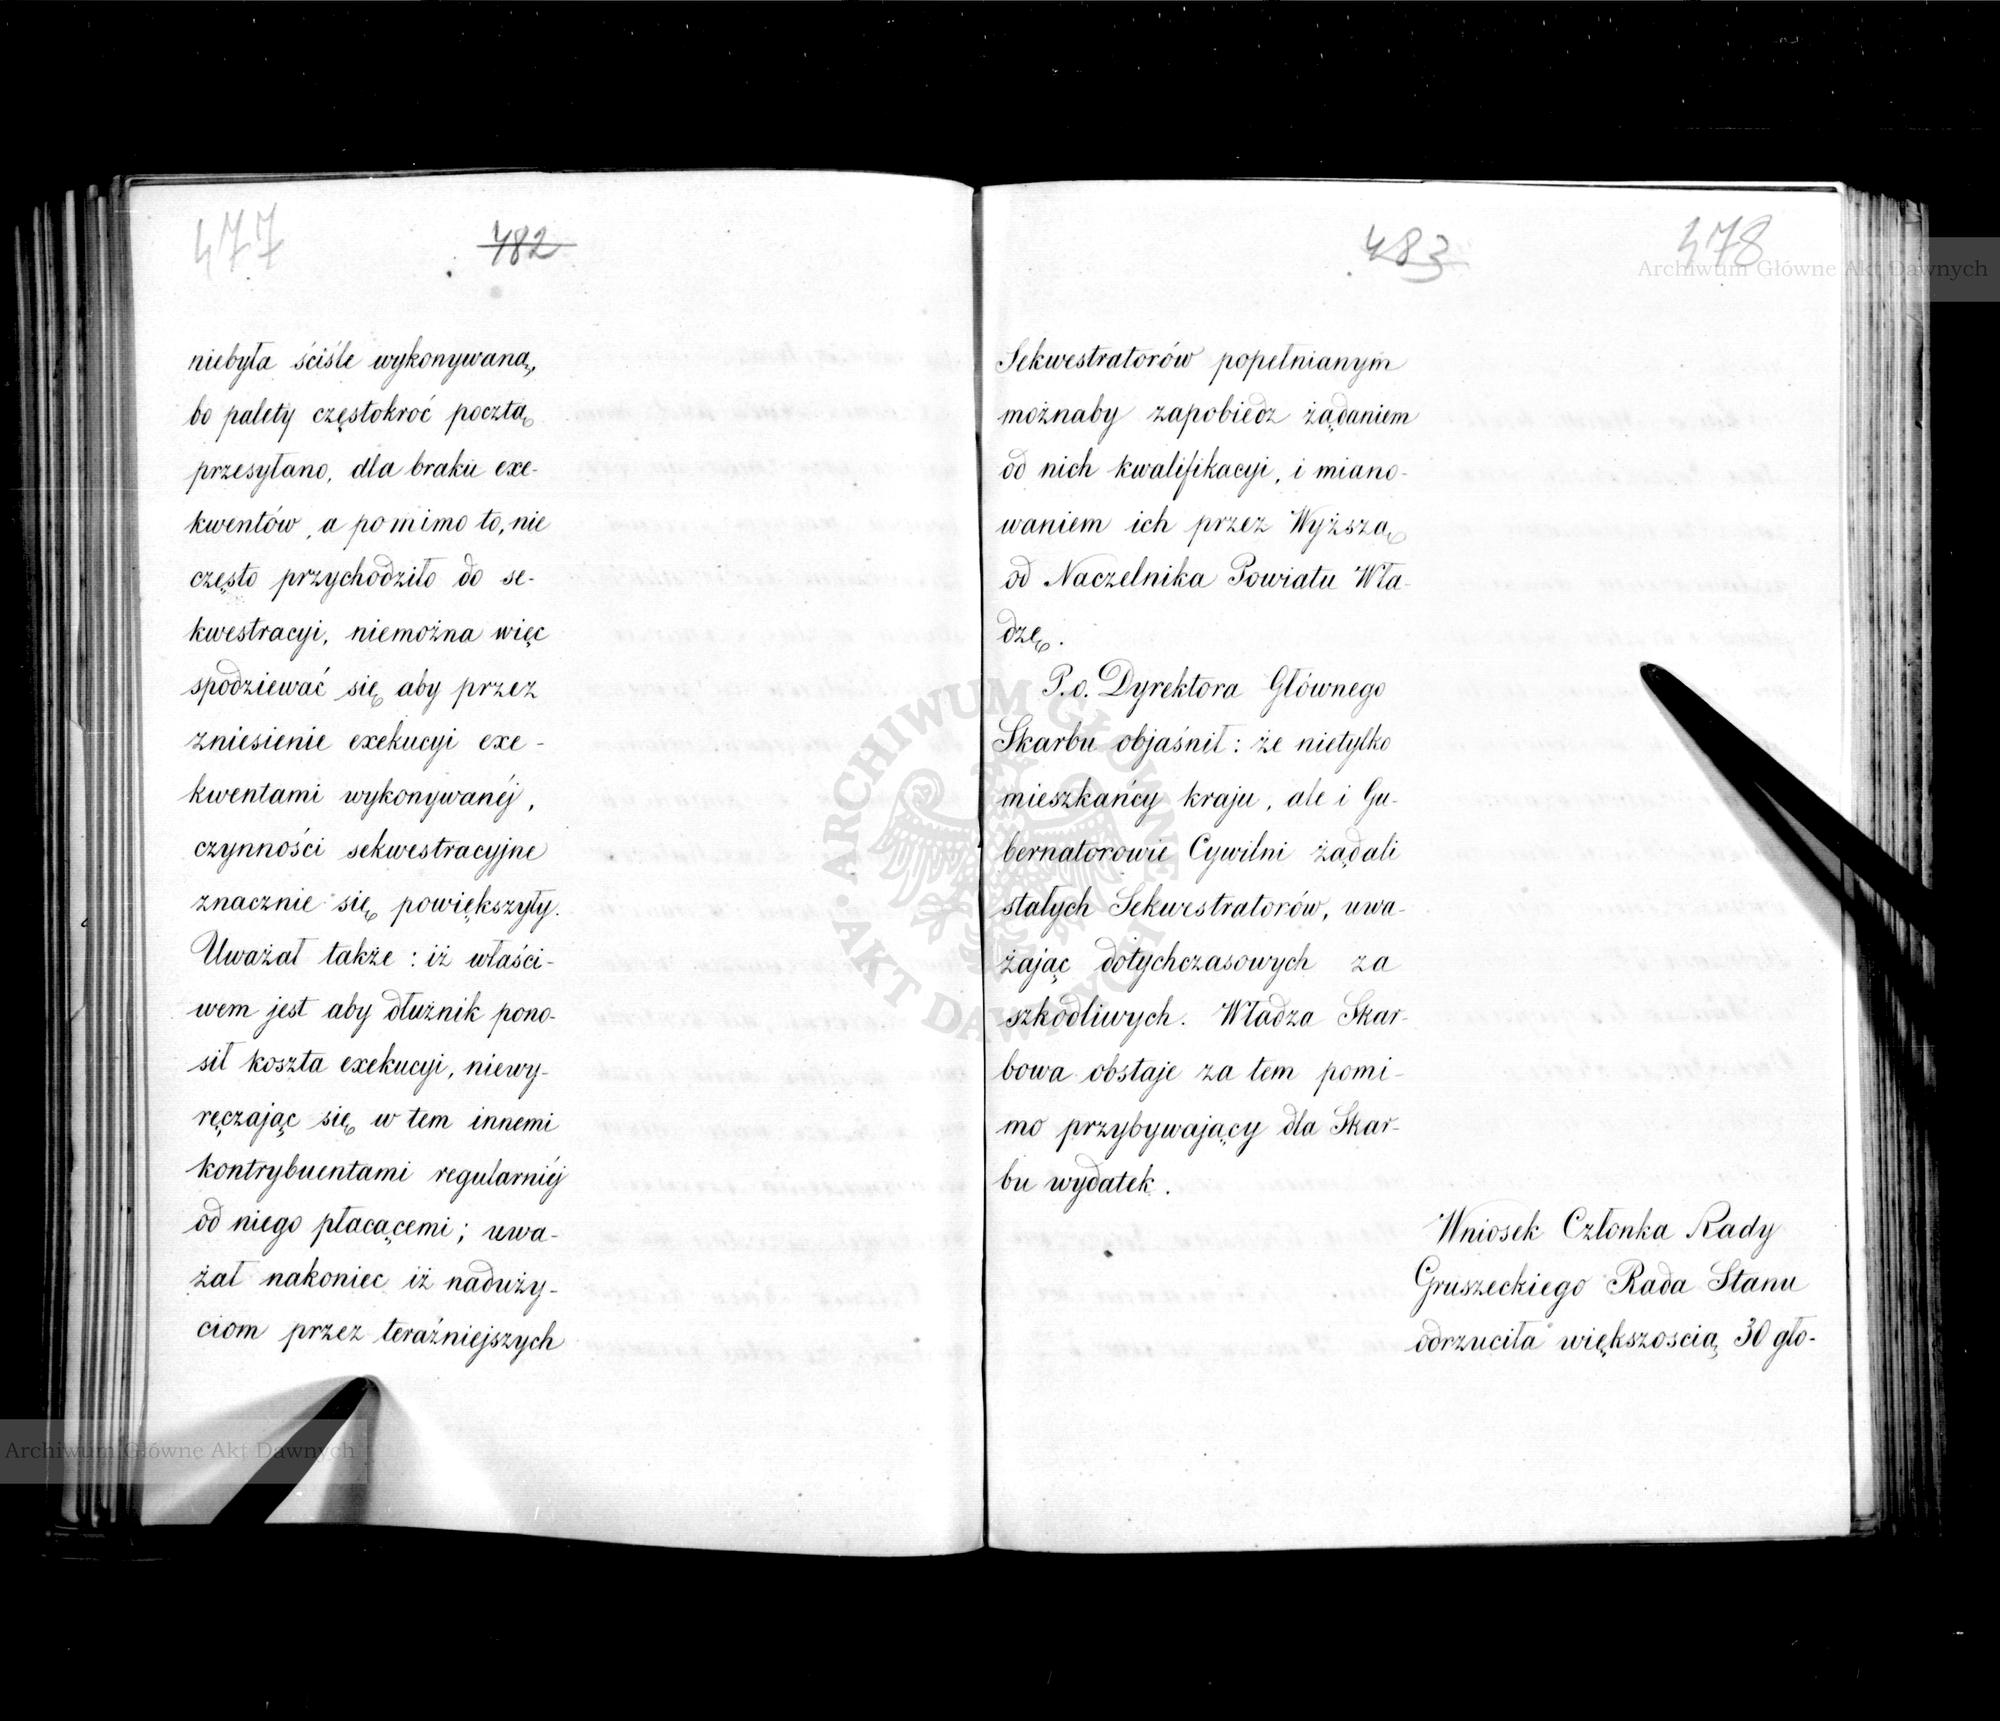 477
482
niebyła ściśle wykonywaną,
bo palety częstokroć pocztą
przesyłano, dla braku exe-
kwentów, a pomimo to, nie
często przychodziło do se-
kwestracyi, niemożna więc
spodziewać się aby przez
zniesienie exekucyi exe-
kwentami wykonywanéj,
czynności sekwestracyjne
znacznie się powiększyły.
Uważał także: iż właści-
wem jest aby dłużnik pono-
sił koszta exekucyi, niewy-
ręczając się w tem innemi
kontrybuentami regularniéj
od niego płacącemi; uwa-
żał nakoniec iż naduży-
ciom przez teraźniejszych
483
478
Sekwestratorów popełnianym
możnaby zapobiedz żądaniem
od nich kwalifikacyi, i miano-
waniem ich przez Wyższą
od Naczelnika Powiatu Wła-
dzę.
P.o. Dyrektora Głównego
Skarbu objaśnił: że nietylko
mieszkańcy kraju, ale i Gu-
bernatorowie Cywilni żądali
stałych Sekwestratorów, uwa-
żając dotychczasowych za
szkodliwych. Władza Skar-
bowa obstaje za tem pomi-
mo przybywający dla Skar-
bu wydatek.
Wniosek Członka Rady
Gruszeckiego Rada Stanu
odrzuciła większoscią 30 gło-
Archiwum Główne Akt Dawnych
Archiwum Główne Akt Dawnych
ARCHIWUM GŁÓWNE AKT DAWNYCH